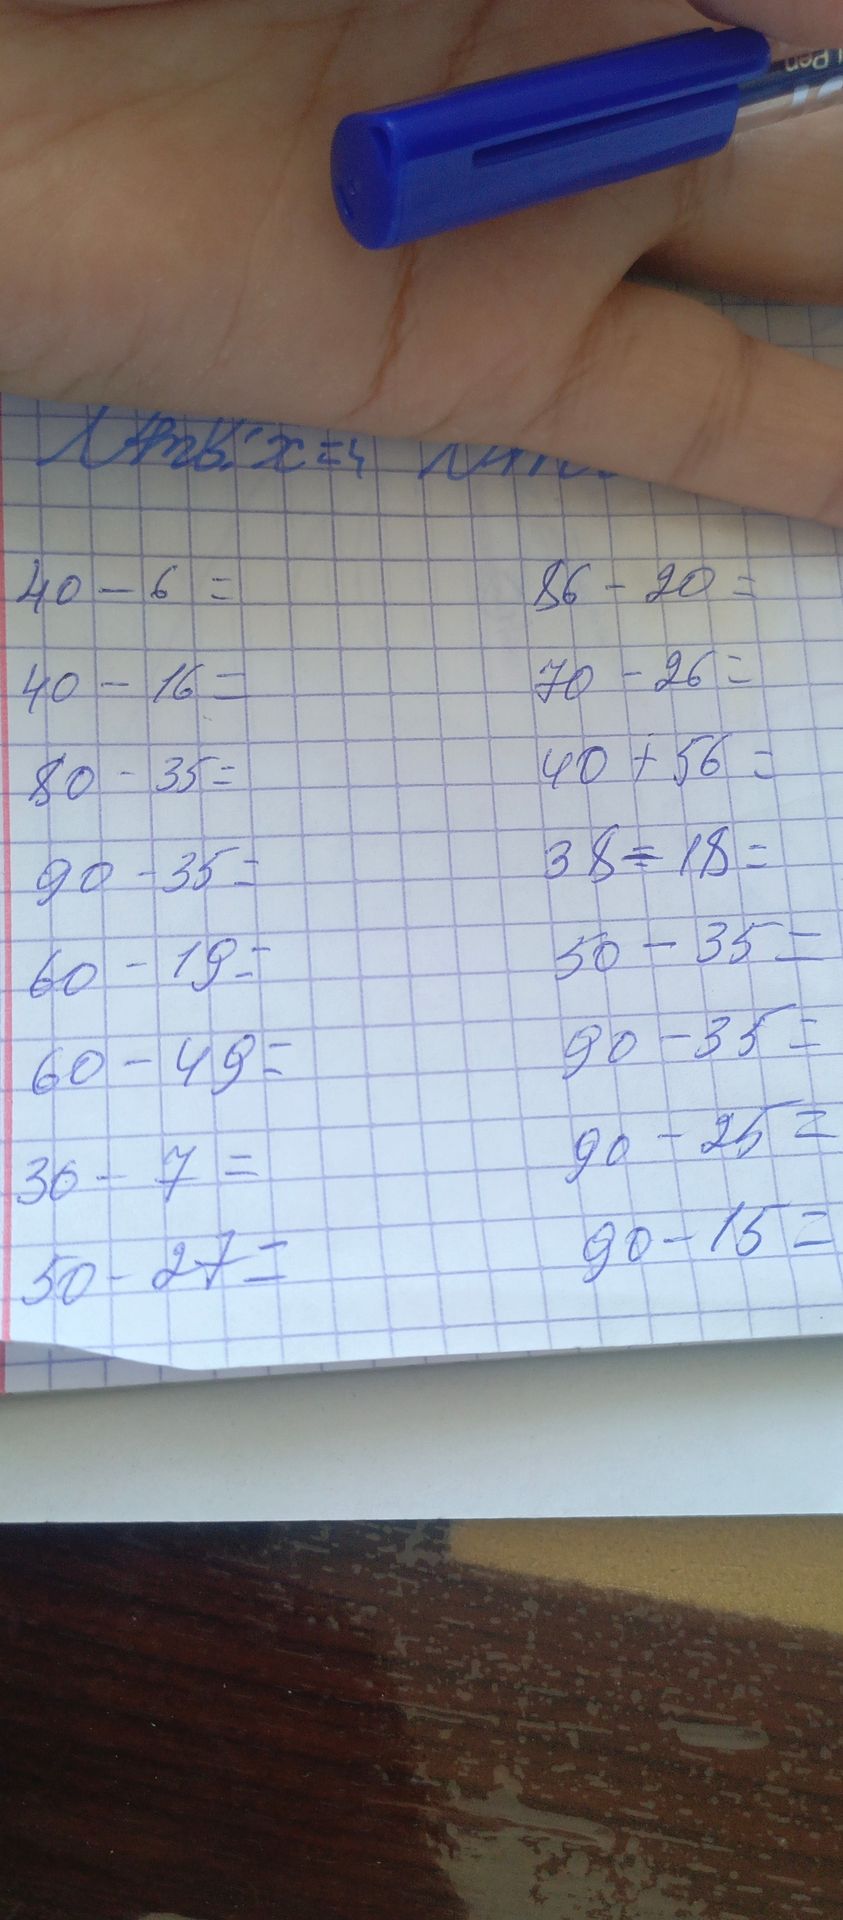 x=4
40 - 6 =
40 - 16 =
80 - 35 =
90 - 35 =
60 - 19 =
60 - 49 =
30 - 7 =
50 - 27 =
86 - 20 =
70 - 26 =
40 + 56 =
38 - 18 =
50 - 35 =
90 - 35 =
90 - 25 =
90 - 15 =
Pen